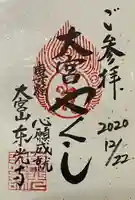 ご参拝
2020
12/22
大宮やくし
心願成就
大宮山东光寺